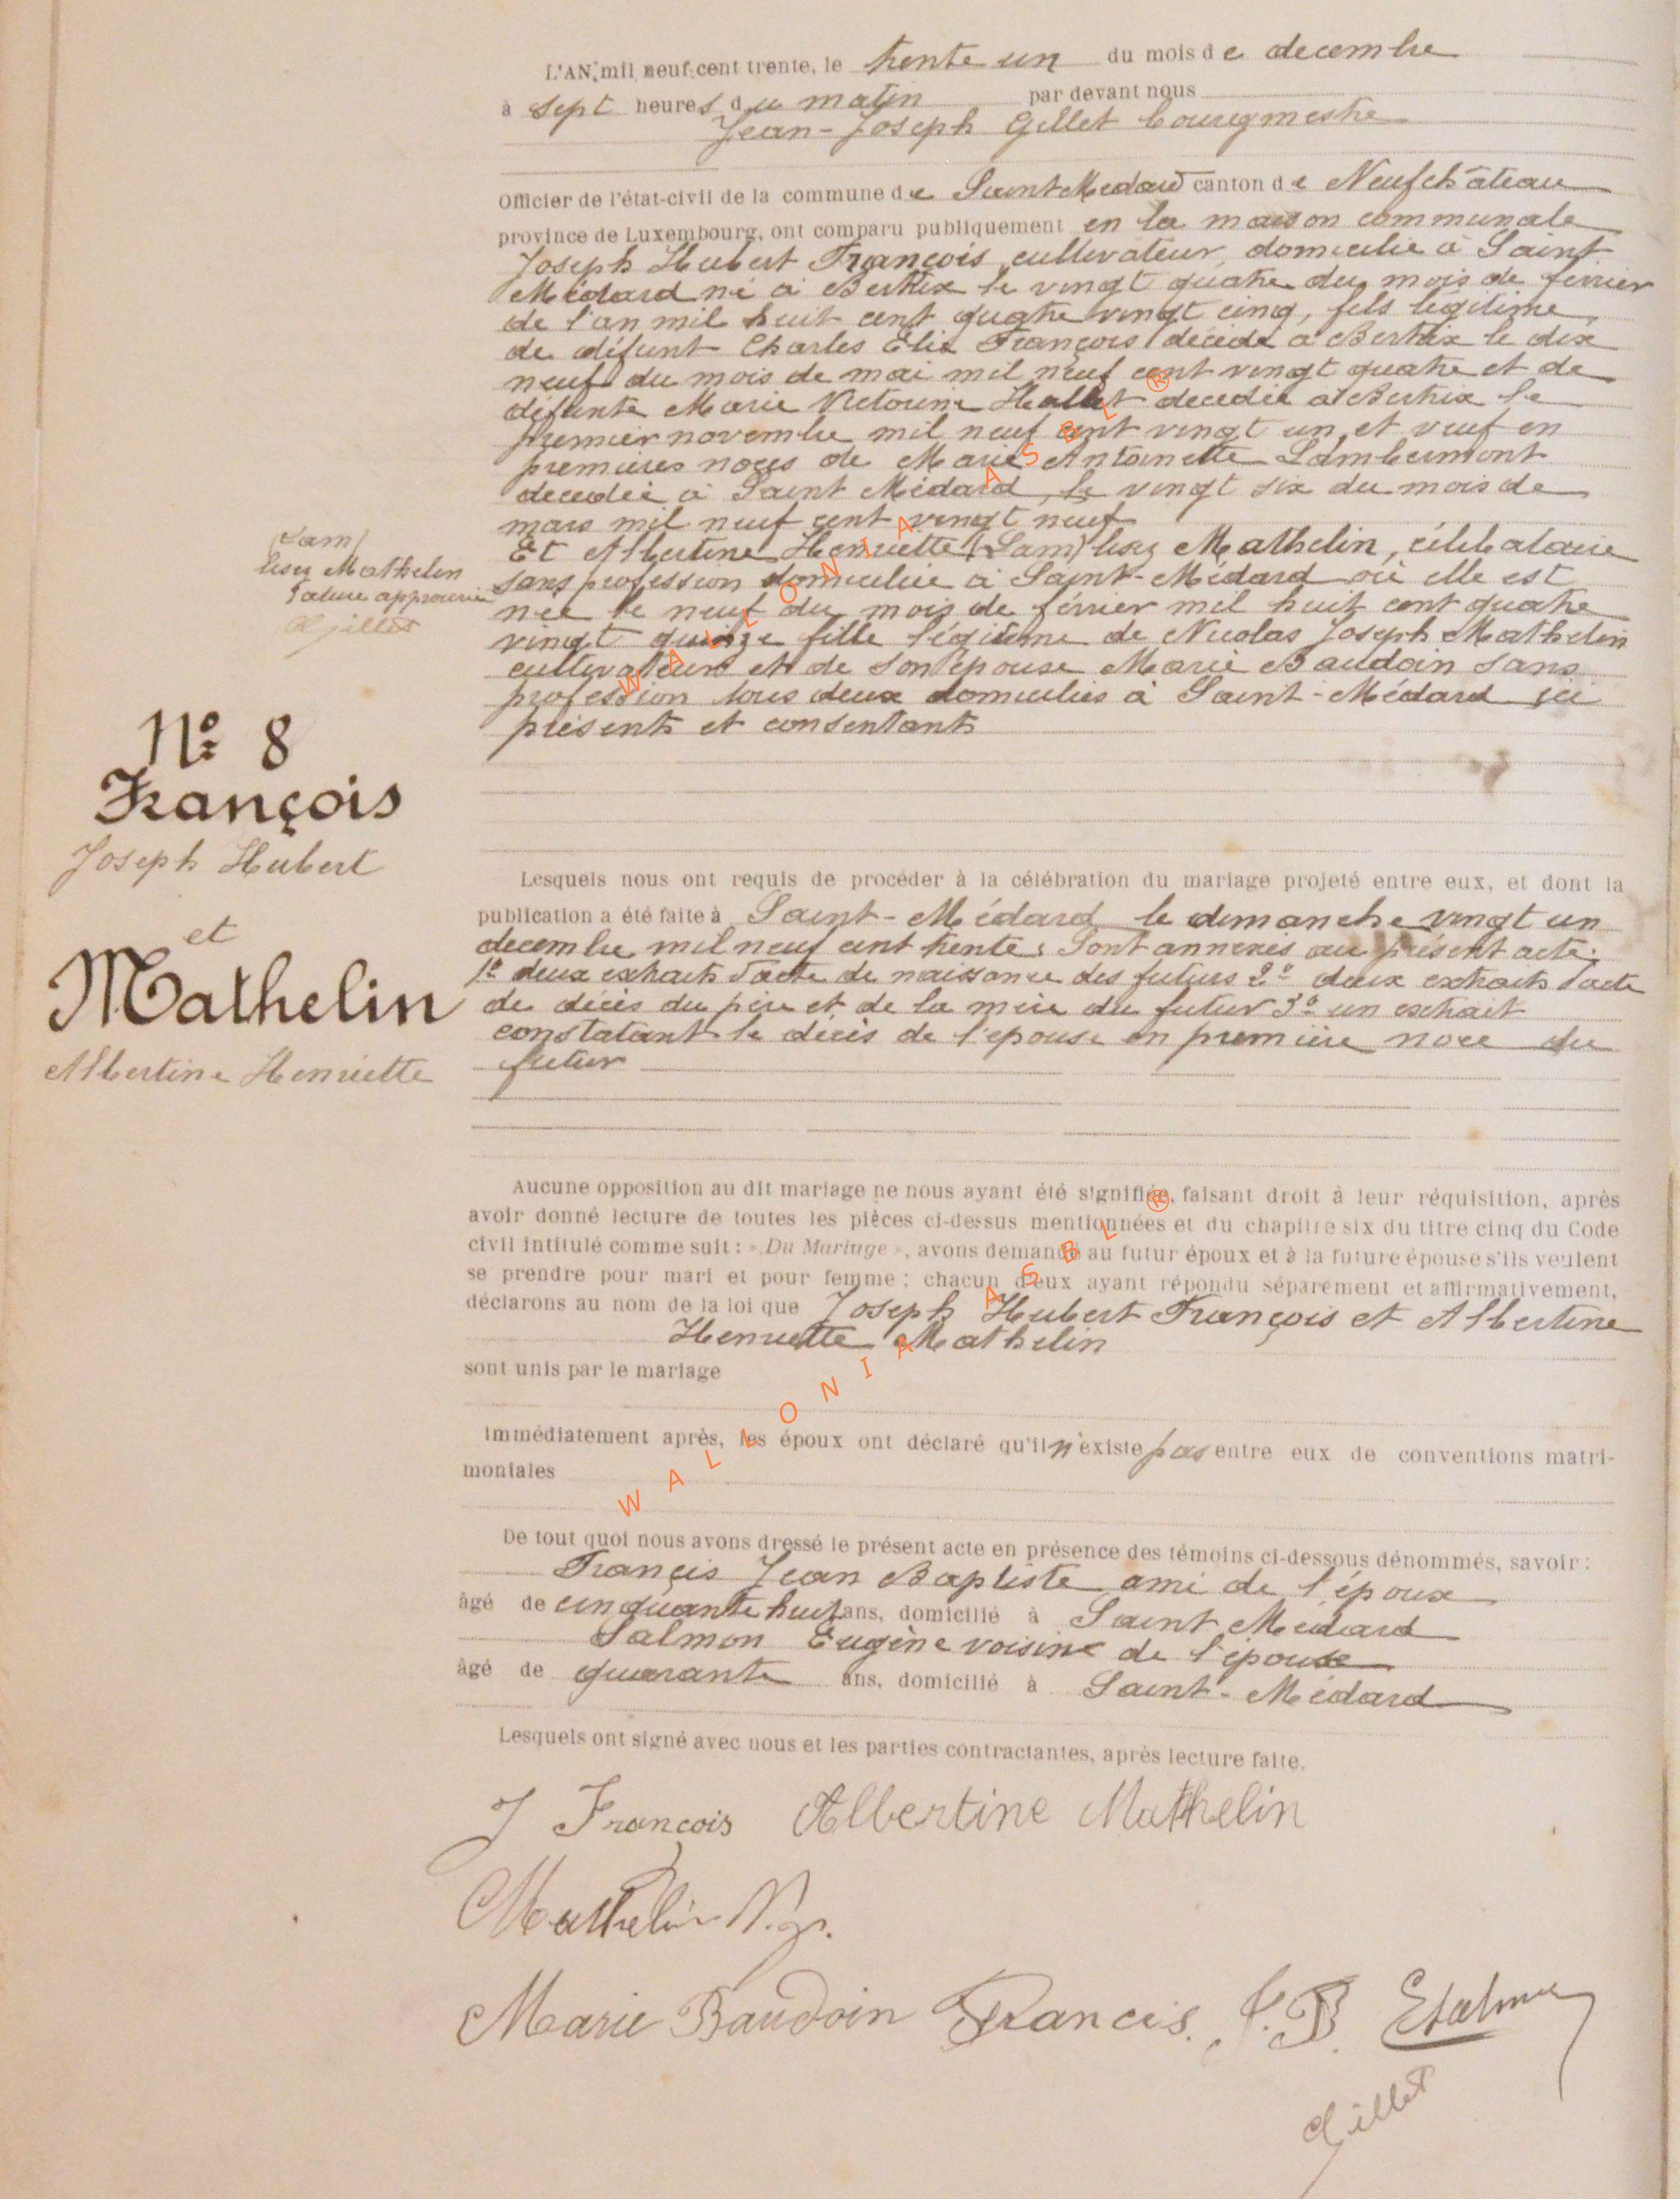 L'AN mil neuf cent trente, le trente un du mois de decembre
à sept heures du matin par devant nous
Jean-Joseph Gillet bourgmestre
Officier de l'état-civil de la commune de Saint Médard canton de Neufchâteau
province de Luxembourg, ont comparu publiquement en la maison communale
Joseph Hubert François, cultivateur, domicilié à Saint
Médard né à Bertrix le vingt quatre du mois de février
de l'an mil huit cent quatre vingt cinq, fils légitime
de défunt Charles Élie François décédé à Bertrix le dix
neuf du mois de mai mil neuf cent vingt quatre et de
défunte Marie Victorine Hallet décédée à Bertrix le
premier novembre mil neuf cent vingt un, et veuf en
premières noces de Marie Antoinette Lambermont
décédée à Saint Médard, le vingt six du mois de
mars mil neuf cent vingt neuf
Et Albertine Henriette (Sam) lisez Mathelin, célibataire
sans profession domiciliée à Saint-Médard où elle est
née le neuf du mois de février mil huit cent quatre
vingt quinze fille légitime de Nicolas Joseph Mathelin
cultivateur et de son épouse Marie Baudoin sans
profession tous deux domiciliés à Saint-Médard ici
présents et consentants
(Sam)
lisez Mathelin
rature approuvée
Gillet
N° 8
François
Joseph Hubert
et
Mathelin
Albertine Henriette
Lesquels nous ont requis de procéder à la célébration du mariage projeté entre eux, et dont la
publication a été faite à Saint-Médard le dimanche vingt un
decembre mil neuf cent trente. Sont annexés au présent acte:
1° deux extraits d'acte de naissance des futurs 2° deux extraits d'acte
de décès du père et de la mère du futur 3° un extrait
constatant le décès de l'épouse en première noce du
futur
Aucune opposition au dit mariage ne nous ayant été signifiée, faisant droit à leur réquisition, après
avoir donné lecture de toutes les pièces ci-dessus mentionnées et du chapitre six du titre cinq du Code
civil intitulé comme suit : « Du Mariage », avons demandé au futur époux et à la future épouse s'ils veulent
se prendre pour mari et pour femme ; chacun d'eux ayant répondu séparément et affirmativement,
déclarons au nom de la loi que Joseph Hubert François et Albertine
Henriette Mathelin
sont unis par le mariage
Immédiatement après, les époux ont déclaré qu'il n'existe pas entre eux de conventions matri-
moniales
De tout quoi nous avons dressé le présent acte en présence des témoins ci-dessous dénommés, savoir :
Francis Jean Baptiste ami de l'époux
âgé de cinquante huit ans, domicilié à Saint Médard
Salmon Eugène voisine de l'épouse
âgé de quarante ans, domicilié à Saint-Médard
Lesquels ont signé avec nous et les parties contractantes, après lecture faite.
J François Albertine Mathelin
Mathelin N. J.
Marie Baudoin Francis. J. B. ESalmon
Gillet
WALLONIA ASBL ®
WALLONIA ASBL ®